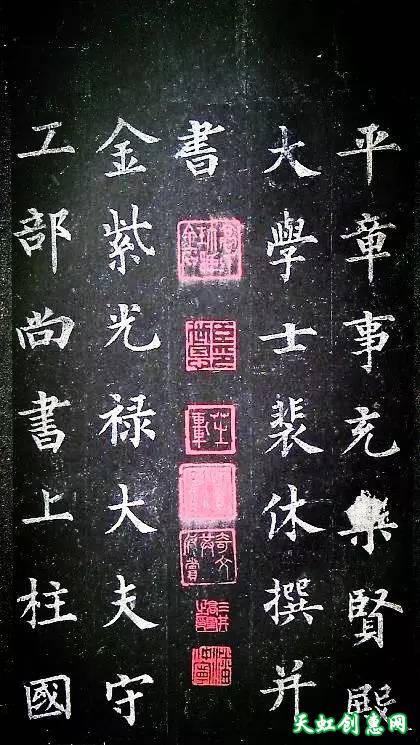 平章事充集賢殿
大學士裴休撰并
書
金紫光禄大夫守
工部尚書上柱國
天虹创惠网